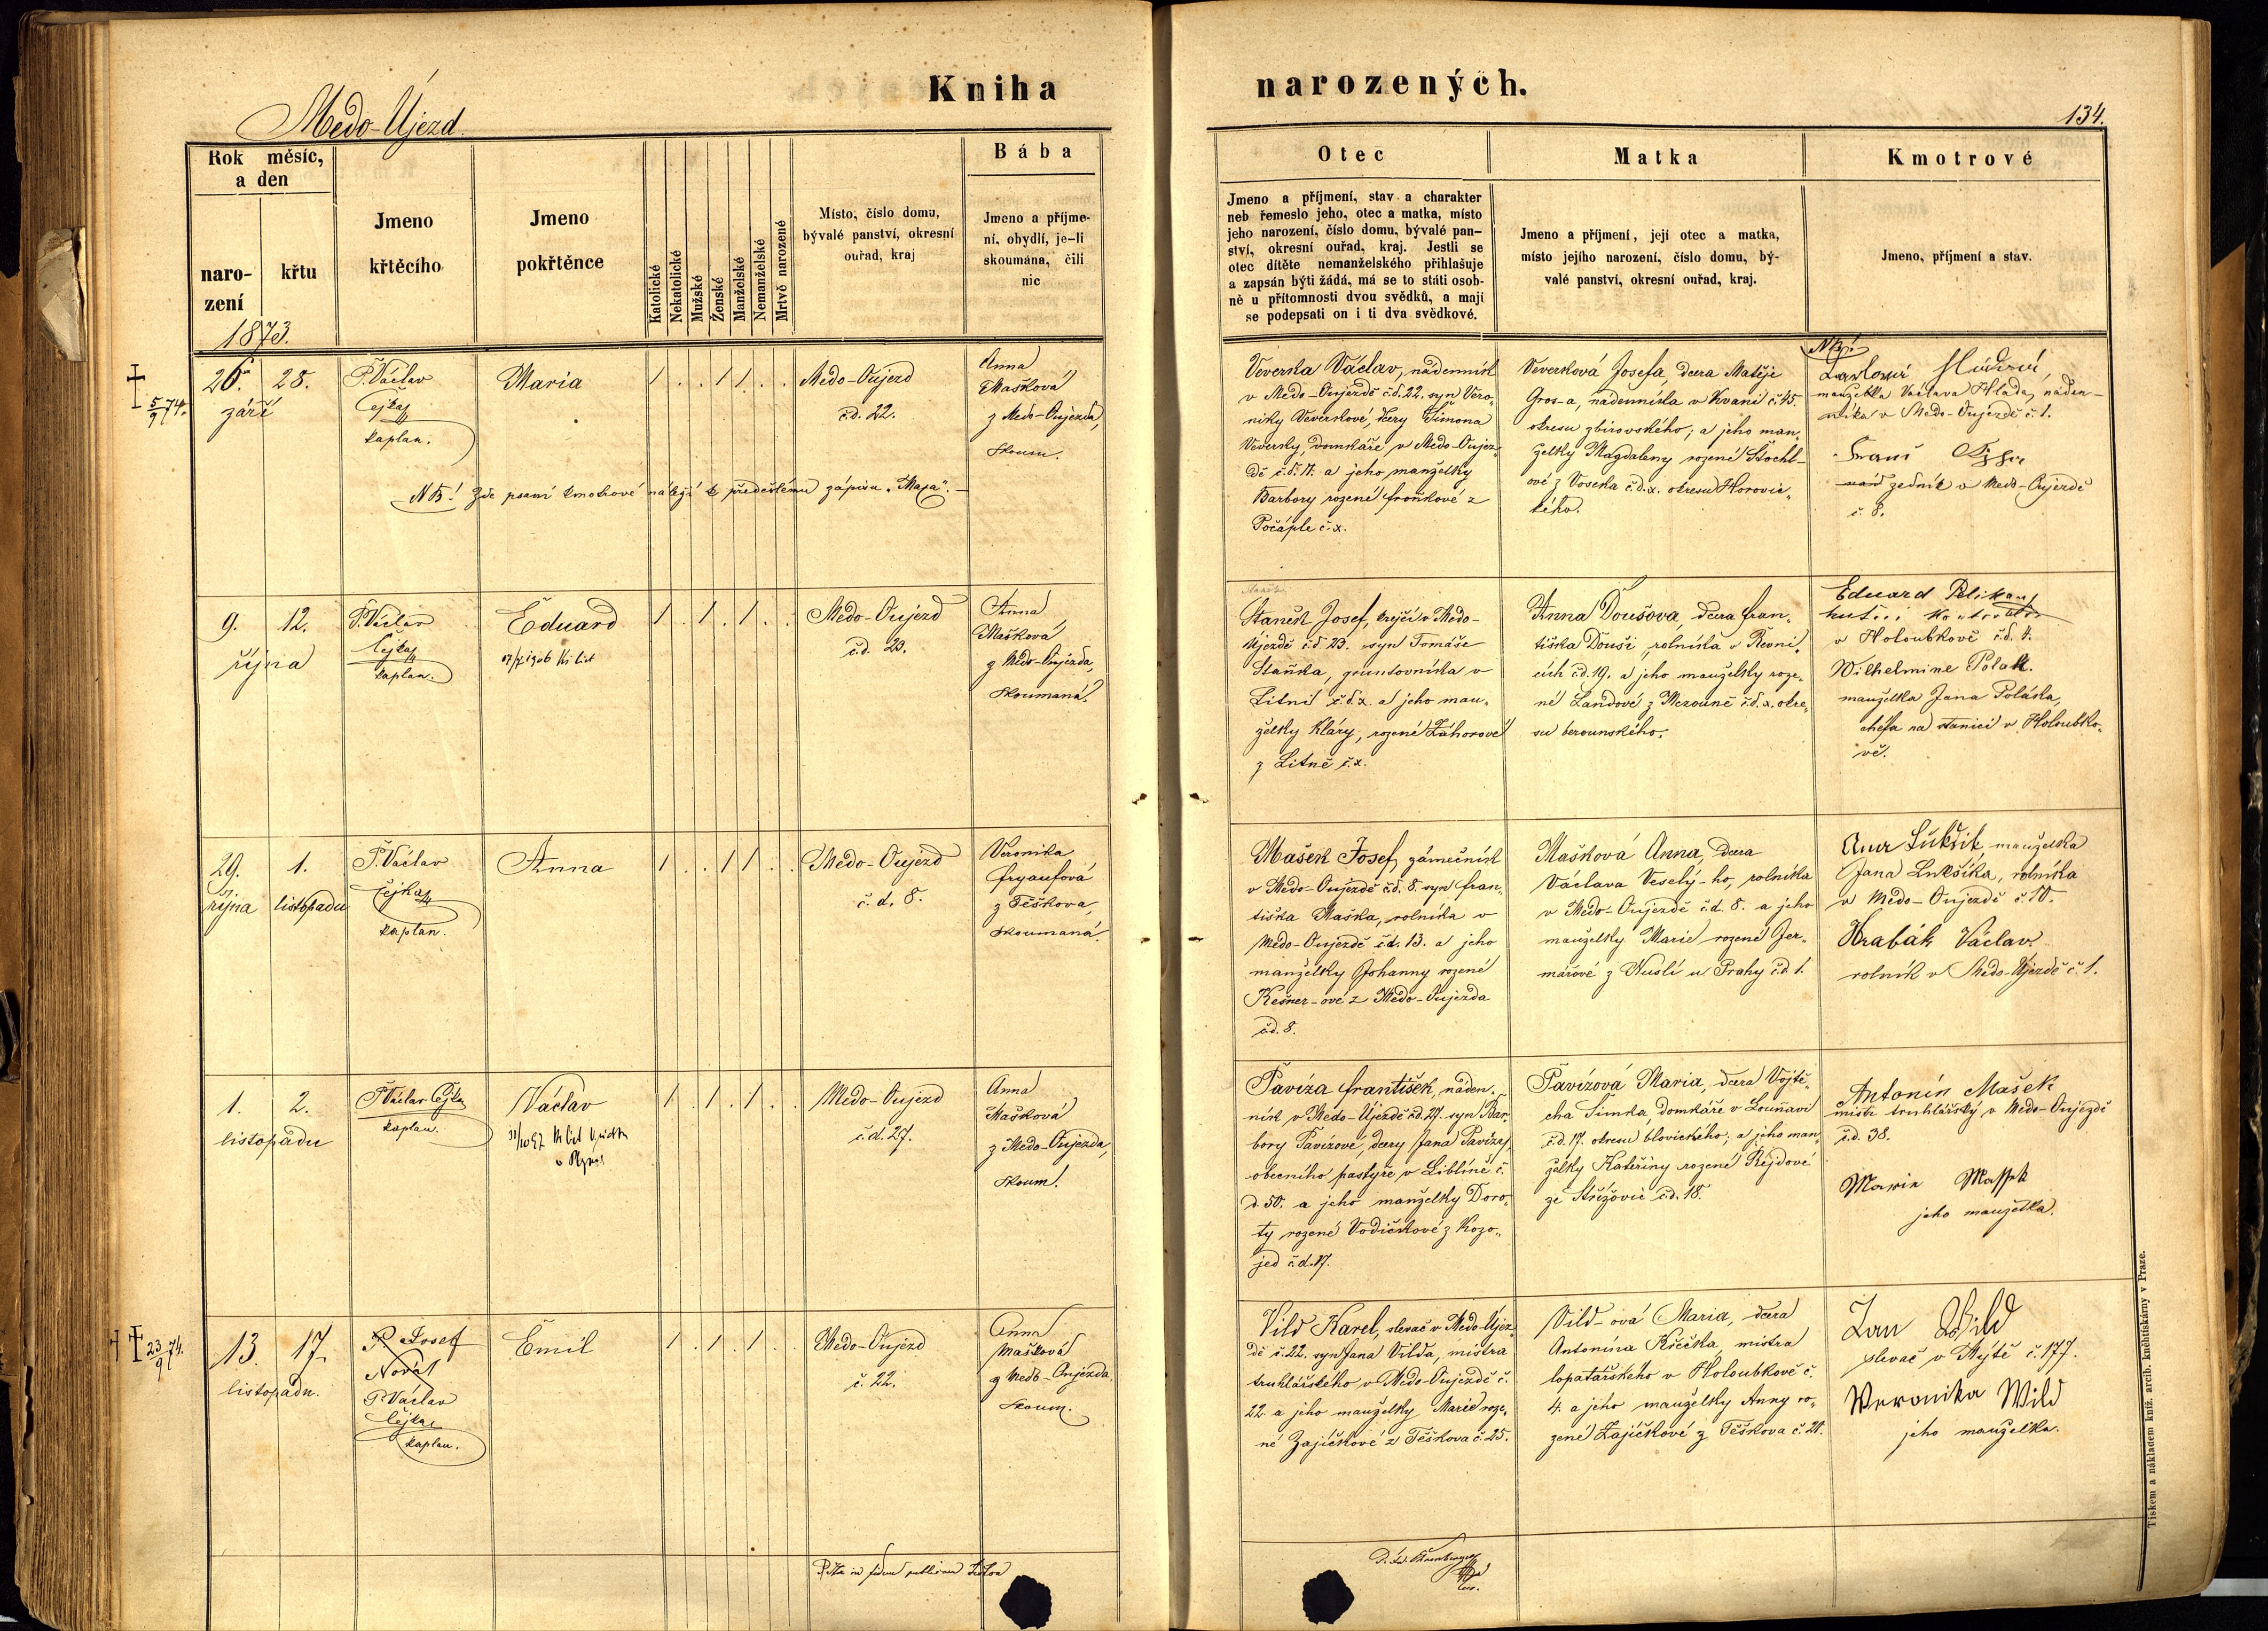 Kniha
narozených.
Medo-Újezd.
134.
Rok měsíc,
a den
naro-
zení
křtu
Jmeno
křtěcího
Jmeno
pokřtěnce
Katolické
Nekatolické
Mužské
Ženské
Manželské
Nemanželské
Mrtvě narozené
Místo, číslo domu,
bývalé panství, okresní
ouřad, kraj
Bába
Jmeno a příjme-
ní, obydlí, je-li
skoumána, čili
nic
Otec
Jmeno a příjmení, stav a charakter
neb řemeslo jeho, otec a matka, místo
jeho narození, číslo domu, bývalé pan-
ství, okresní ouřad, kraj. Jestli se
otec dítěte nemanželského přihlašuje
a zapsán býti žádá, má se to státi osob-
ně u přítomnosti dvou svědků, a mají
se podepsati on i ti dva svědkové.
Matka
Jmeno a příjmení, její otec a matka,
místo jejího narození, číslo domu, bý-
valé panství, okresní ouřad, kraj.
Kmotrové
Jmeno, příjmení a stav.
1873.
5/9 74.
26. 28.
září
P. Václav
Čejka
kaplan.
Maria
Medo-Oujezd
č.d. 22.
Anna
Mašková
z Medo-Oujezda,
skoum.
NB! Zde psaní kmotrové náležejí k předešlému zápisu
Veverka Václav, nádenník
v Medo-Oujezdě č.d. 22. syn Vero-
niky Veverkové, dcery Šimona
Veverky, domkáře v Medo-Oujez-
dě č.d. 17. a jeho manželky
Barbory rozené Froňkové z
Počáple č. x.
Veverková Josefa, dcera Matěje
Gros-a, nádenníka v Kvani č. 45.
okresu zbirovského; a jeho man-
želky Magdaleny rozené Štochl-
ové z Voseka č.d. x. okresu Horovic-
kého.
NB!
manželka Václava Hlada, náden-
níka v Medo-Oujezdě č. 1.
zedník v Medo-Oujezdě
č. 8.
9. 12.
října
P. Václav
Čejka
kaplan.
Eduard
Medo-Oujezd
č.d. 23.
Anna
Mašková
z Medo-Oujezda,
skoumaná.
Staněk Josef, krejčí v Medo-
Újezdě č.d. 23. syn Tomáše
Staňka, gruntovníka v
Litni č.d. x. a jeho man-
želky Kláry, rozené Záhorové
z Litně č. x.
Anna Doušova, dcera Fran-
tiška Douši rolníka v Řevni-
cích č.d. 19. a jeho manželky roze-
né Landové z Mezouně č.d. x. okre-
su berounského.
Eduard Pelikan
v Holoubkově č.d. 1.
Wilhelmine Polak.
manželka Jana Poláka,
chefa na stanici v Holoubko-
vě.
29. 1.
října listopadu
P. Václav
Čejka
kaplan.
Anna
Medo-Oujezd
č. d. 8.
Veronika
Fryaufová
z Těškova,
skoumaná.
Mašek Josef, zámečník
v Medo-Oujezdě č.d. 8. syn Fran-
tiška Maška, rolníka v
Medo-Oujezdě č.d. 13. a jeho
manželky Johanny rozené
Kešner-ové z Medo-Oujezda
č.d. 8.
Mašková Anna, dcera
Václava Veselý-ho, rolníka
v Medo-Oujezdě č.d. 8. a jeho
manželky Marie rozené Jer-
mářové z Nuslí u Prahy č.d. 1.
Lukšik manželka
Jana Lukšíka, rolníka
v Medo-Oujezdě č. 10.
Hrabák Václav
rolník v Medo-Újezdě č. 1.
1. 2.
listopadu
P. Václav Čejka
kaplan.
Václav
Medo-Oujezd
č.d. 27.
Anna
Mašková
z Medo-Oujezda,
skoum.
Pavíza František, náden-
ník v Medo-Újezdě č.d. 27. syn Bar-
bory Pavízové, dcery Jana Pavízy,
obecního pastýře v Liblíně č.
d. 50. a jeho manželky Doro-
ty rozené Vodičkové z Kozo-
jed č.d. 17.
Pavízová Maria, dcera Vojtě-
cha Šimka, domkáře v Louňavi
č.d. 17. okresu blovického; a jeho man-
želky Kateřiny rozené Rejdové
ze Střížovic č.d. 18.
Antonín Mašek
mistr truhlářský v Medo-Oujezdě
č.d. 38.
Marie Massek
jeho manželka.
23/9 74.
13. 17.
listopadu.
P. Josef
Novák
P. Václav
Čejka
kaplan.
Emil
Medo-Oujezd
č. 22.
Anna
Mašková
z Medo-Oujezda.
skoum.
Vild Karel, slevač v Medo-Újez-
dě č. 22. syn Jana Vilda, mistra
truhlářského v Medo-Oujezdě č.
22. a jeho manželky Marie roze-
né Zajíčkové z Těškova č. 25.
Vild-ová Maria, dcera
Antonína Křečka, mistra
lopatářského v Holoubkově č.
4. a jeho manželky Anny ro-
zené Zajíčkové z Těškova č. 21.
Jan Wild
slevač v Mýtě č. 177.
Veronika Wild
jeho manželka.
Tiskem a nákladem kníž. arcib. kněhtiskárny v Praze.